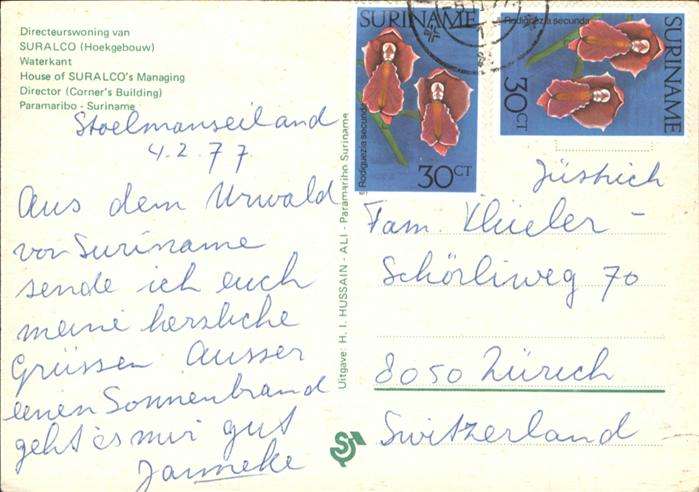 Directeurswoning van
SURALCO (Hoekgebouw)
Waterkant
House of SURALCO's Managing
Director (Corner's Building)
Paramaribo - Suriname
Stoelmanseiland
4.2.77
Aus dem Urwald
von Suriname
sende ich euch
meine herzliche
Grüssen Ausser
einen Sonnenbrand
geht es mir gut
Janneke
Uitgave: H. I. HUSSAIN - ALI - Paramaribo Suriname
SURINAME
Rodriguezia secunda
30CT
SURINAME
Rodriguezia secunda
30CT
Fam.
Schörliweg 70
8050 Zürich
Switzerland